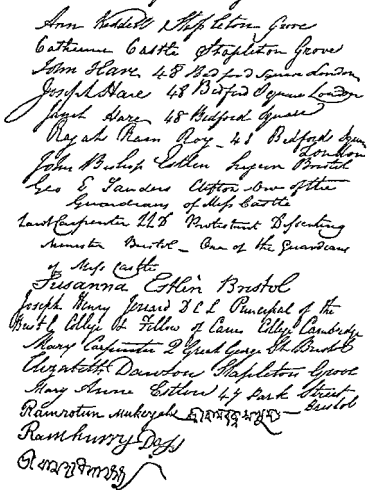 Ann Kiddell Stapleton Grove
Catherine Castle Stapleton Grove
John Hare 48 Bedford Square London
Joseph Hare 48 Bedford Square London
Janet Hare 48 Bedford Square
Rajah Ram Roy - 48 Bedford Square London
John Bishop Estlin Surgeon Bristol
Geo E Sanders Clifton one of the
Guardians of Miss Castle
Lant Carpenter LLD Protestant Dissenting
Minister Bristol - One of the Guardians
of Miss Castle
Susanna Estlin Bristol
Joseph Henry Jerrard D C L Principal of the
Bristol College & Fellow of Caius College Cambridge
Mary Carpenter 2 Great George St. Bristol
Elizabeth Dawson Stapleton Grove
Mary Anne Estlin 47 Park Street
Bristol
Ramrotun Mukerjah
Ramhurry Doss